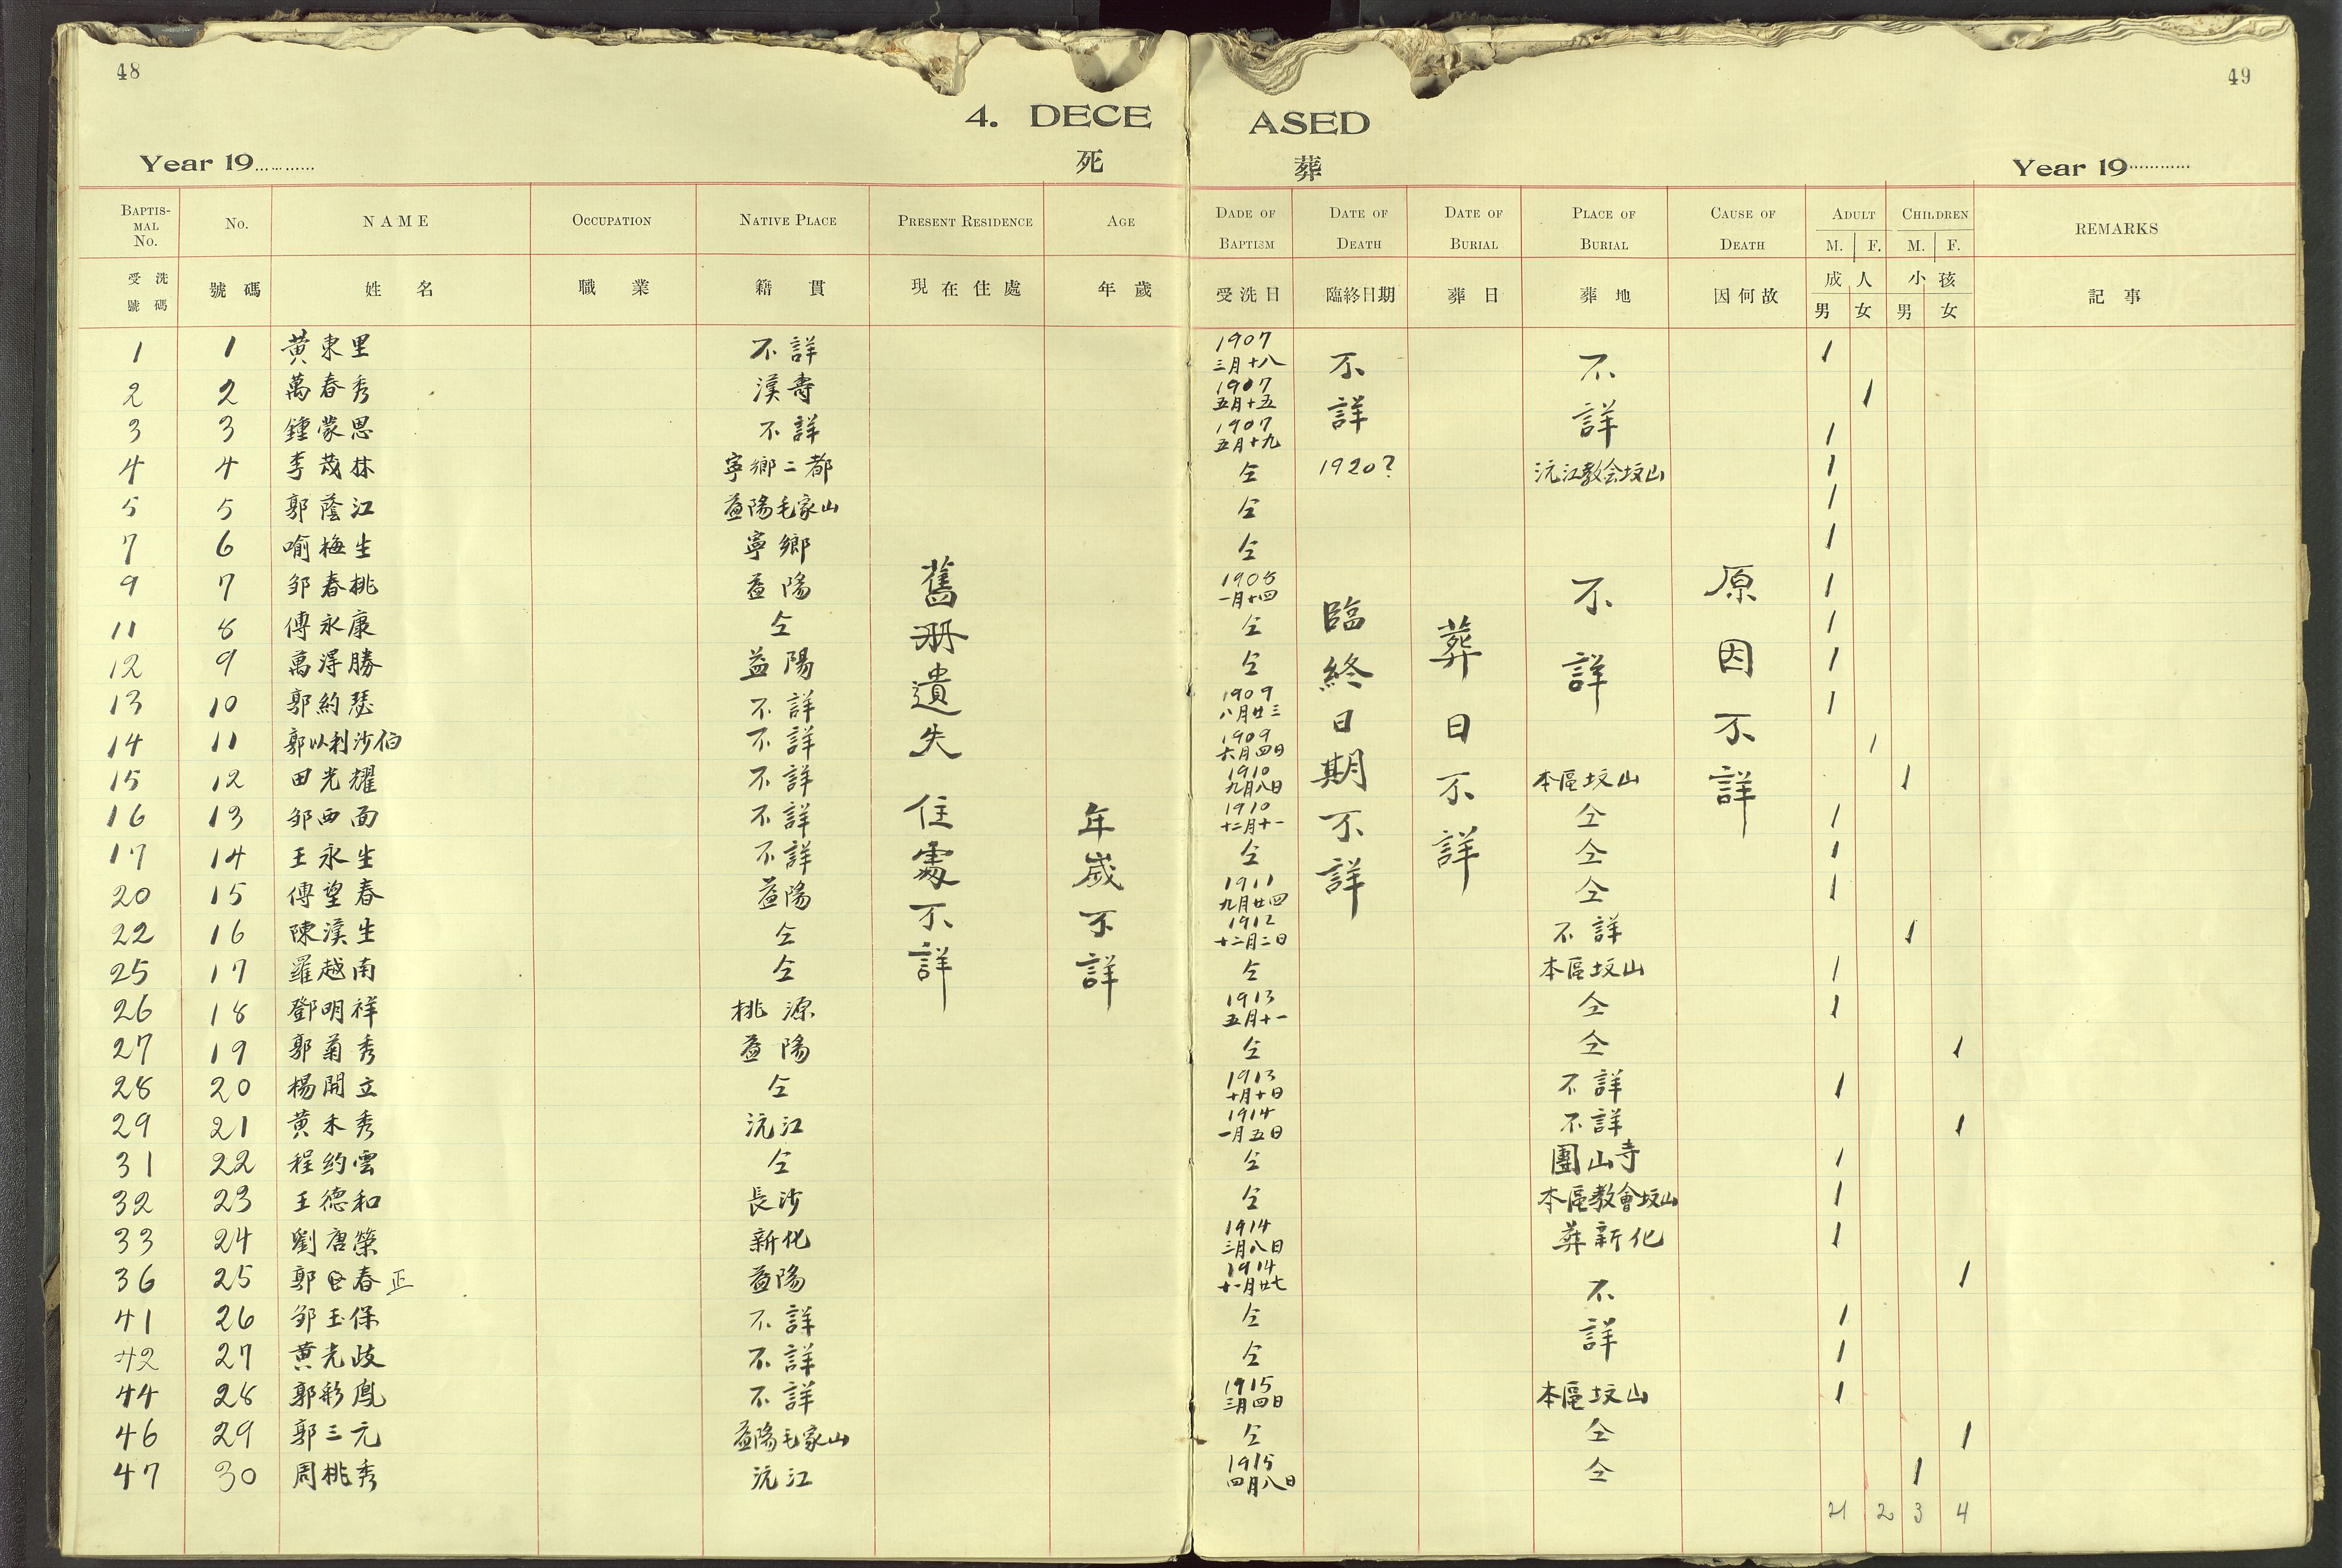 48
49
4. DECEASED
Year 19............
死 葬
Year 19............
BAPTISMAL No. No. NAME OCCUPATION NATIVE PLACE PRESENT RESIDENCE AGE DADE OF BAPTISM DATE OF DEATH DATE OF BURIAL PLACE OF BURIAL CAUSE OF DEATH ADULT M. F. CHILDREN M. F. REMARKS
受洗號碼 號碼 姓名 職業 籍貫 現在住處 年歲 受洗日 臨終日期 葬日 葬地 因何故 成人 男 女 小孩 男 女 記事
1 1 黃東里 不詳 1907 三月十八 不詳 不詳 1
2 2 萬春秀 漢壽 1907 五月十五 1
3 3 鍾蒙恩 不詳 1907 五月十九 1
4 4 李茂林 寧鄉二都 仝 1920? 沅江教会坟山 1
5 5 郭蔭江 益陽毛家山 仝 1
7 6 喻梅生 寧鄉 仝 1
9 7 邹春桃 益陽 1908 一月十四 不詳 1
11 8 傅永康 仝 仝 1
12 9 萬得勝 益陽 仝 1
13 10 郭約瑟 不詳 1909 八月廿三 1
14 11 郭以利沙伯 不詳 1909 六月四日 1
15 12 田光耀 不詳 1910 九月八日 本區坟山 1
16 13 邹西面 不詳 1910 十二月十一 仝 1
17 14 王永生 不詳 仝 仝 1
20 15 傅望春 益陽 1911 九月廿四 仝 1
22 16 陳漢生 仝 1912 十二月二日 不詳 1
25 17 羅越南 仝 仝 本區坟山 1
26 18 鄧明祥 桃源 1913 五月十一 仝 1
27 19 郭菊秀 益陽 仝 仝 1
28 20 楊開立 仝 1913 十月十日 不詳 1
29 21 黃禾秀 沅江 1914 一月五日 不詳 1
31 22 程約雲 仝 仝 團山寺 1
32 23 王德和 長沙 仝 本區教會坟山 1
33 24 劉唐榮 新化 1914 三月八日 葬新化 1
36 25 郭春正 益陽 1914 十一月廿七 不詳 1
41 26 邹玉保 不詳 仝 1
42 27 黃光歧 不詳 仝 1
44 28 郭彩鳳 不詳 1915 三月四日 本區坟山 1
46 29 郭三元 益陽毛家山 仝 仝 1
47 30 周桃秀 沅江 1915 四月八日 仝 1
舊册遺失住處不詳
年歲不詳
臨終日期不詳
葬日不詳
原因不詳
21 2 3 4